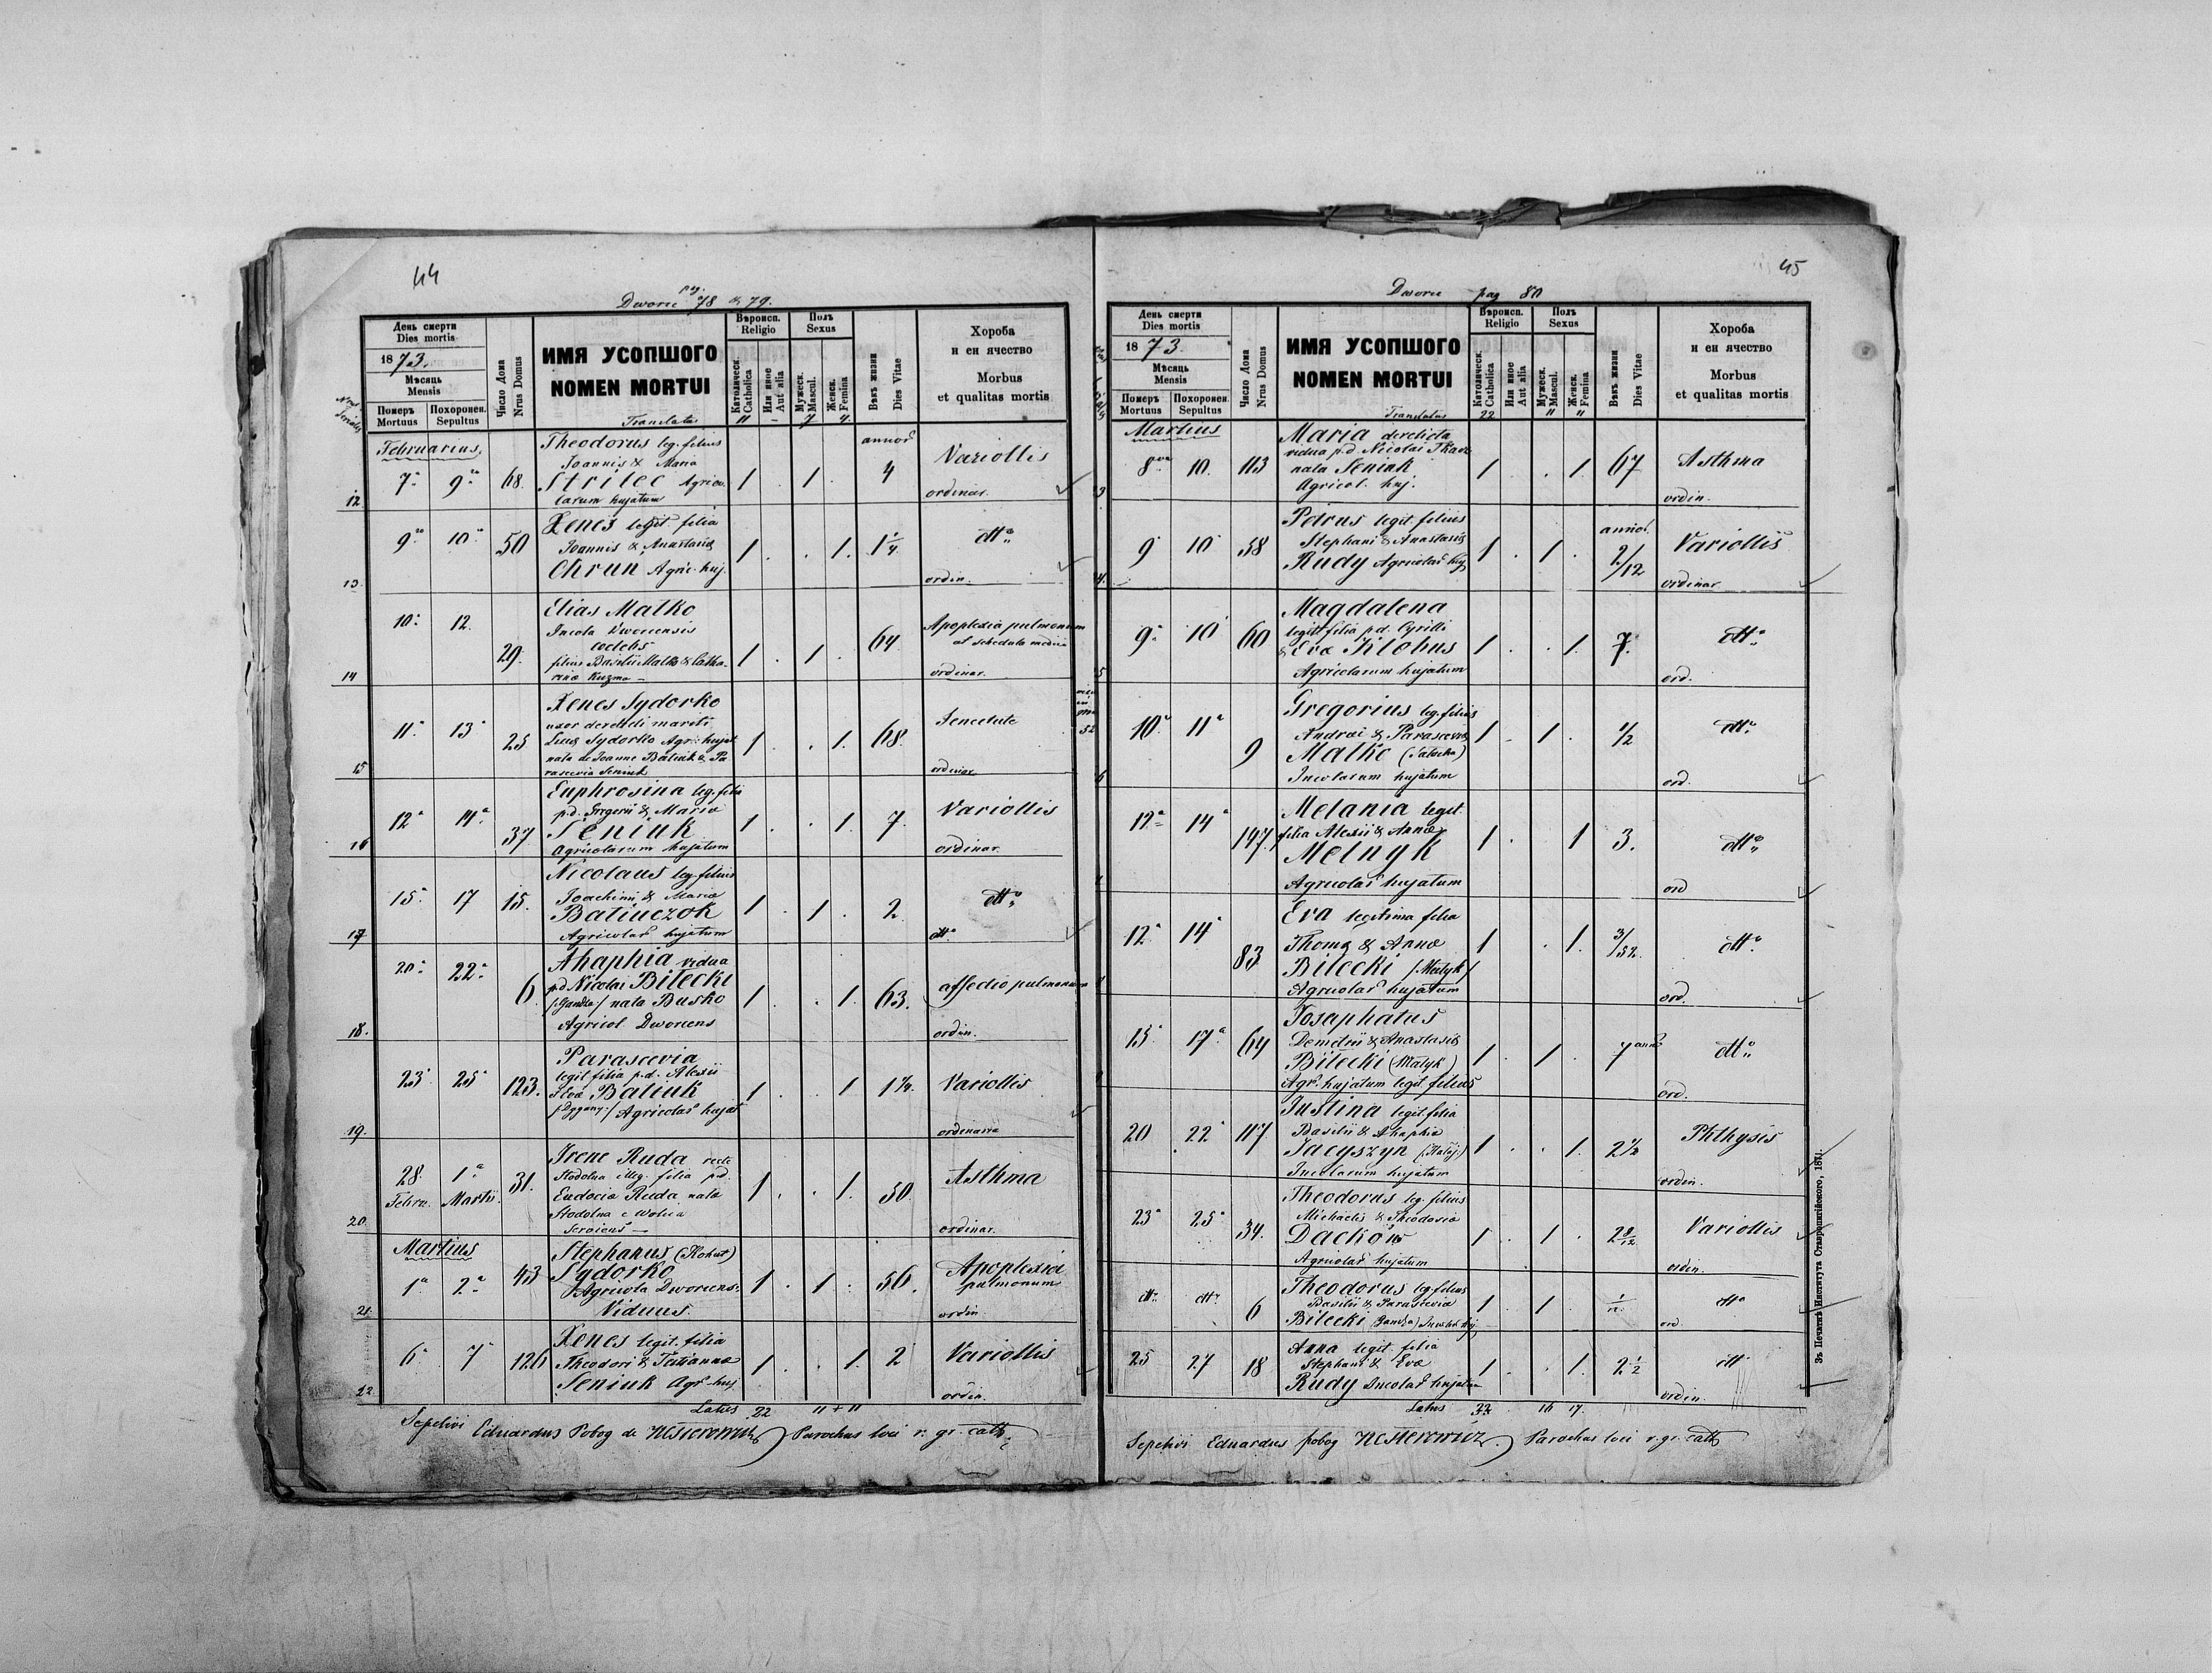 44
pag.
Dworce 78 & 79.
День смерти
Dies mortis
1873.
Мѣсяць
Mensis
Померъ
Mortuus
Похоронен.
Sepultus
Число Дома
Nrus Domus
ИМЯ УСОПШОГО
NOMEN MORTUI
Translatus
Вѣроисп.
Religio
Католическ.
Catholica
Или иное
Aut alia
Полъ
Sexus
Мужеск.
Mascul.
Женск.
Femina
Вѣкъ жизни
Dies Vitae
Хороба
и еи ячество
Morbus
et qualitas mortis
11 - 7 4.
Februarius
12 7a 9a 68. Theodorus leg. filius
Joannis & Maria
Strilec Agrico-
larum hujatum
1 . 1 . annor. 4 Variollis
ordinar.
13. 9a 10a 50 Xenes legit filia
Joannis & Anastasiæ
Chrun Agric. huj.
1 . . 1. 1 1/4 dtto
ordin.
14 10a 12. 29. Elias Malko
Incola Dworcensis
cælebs
filius Basilii Malko & Catha-
rinæ Kuzma —
1 . 1 . 64 Apoplexia pulmonum
ordinar.
15 11a 13a 25 Xenes Sydorko
uxor derelicti mariti
Lucæ Sydorko Agr. hujat.
nata de Joanne Batiuk & Pa
rascevia Seniuk
1 . . 1. 68. Senectute
ordinar.
16 12a 14a 37 Euphrosina leg. filia
p.d. Gregorii & Maria
Seniuk
Agricolarum hujatum
1 . . 1. 7. Variollis
ordinar.
17 15a 17 15. Nicolaus leg. filius
Joachimi & Maria
Batiuczok
Agricolar. hujatum
1 . 1 . 2 dtto
dtto
18. 20a 22a 6. Ahaphia vidua
p.d. Nicolai Bilecki
/Gandza/ nata Busko
Agricol Dworcens
1 . . 1. 63. affectio pulmonum
ordin.
19. 23a 25a 123. Parascevia
legit filia p.d. Alexii
Batiuk
Agricolar. hujat
1 . . 1 1 1/4. Variollis
ordinaria
20 28. Febru. 1a Martii. 31. Irene Ruda recte
Stodolna illeg. filia p.d.
Eudocia Ruda nata
Stodolna e Wolica
1 . . 1. 50. Asthma
ordinar.
Martius
21. 1a 2a 43 Stephanus
Sydorko
Agricola Dworcens.
Viduus.
1 . 1 . 56. Apoplexia
pulmonum
ordin.
22. 6a 7a 126 Xenes legit. filia
Theodori & Tatianna
Seniuk Agr. huj.
1 . . 1. 2 Variollis
ordin.
Latus 22 11 + 11
Sepelivi Eduardus Pobog de Nesterowicz Parochus loci r. gr. cath.
45
Dworce pag 80
День смерти
Dies mortis
1873.
Мѣсяць
Mensis
Померъ
Mortuus
Похоронен.
Sepultus
Число Дома
Nrus Domus
ИМЯ УСОПШОГО
NOMEN MORTUI
Translatus
Вѣроисп.
Religio
Католическ.
Catholica
Или иное
Aut alia
Полъ
Sexus
Мужеск.
Mascul.
Женск.
Femina
Вѣкъ жизни
Dies Vitae
Хороба
и еи ячество
Morbus
et qualitas mortis
22 11 11
Martius
8va 10. 113 Maria derelicta
vidua p.d. Nicolai Tkacz
nata Seniuk
Agricol. huj.
1 . . 1. 67 Asthma
ordin.
9 10 58 Petrus legit. filius
Stephani & Anastasiæ
Rudy Agricolar. huj
1 . 1 . annor. 2/12 Variollis
ordinar.
9a 10 60 Magdalena
legit filia p.d. Cyrilli
& Eva Klobus
Agricolarum hujatum
1 . . 1. 7. dtto
ord.
10a 11a 9 Gregorius leg. filius
Andrei & Parasceviæ
Malko
Incolarum hujatum
1 - 1 . 1/2 dtto
ord.
12a 14a 147. Melania legit.
filia Alexii & Annæ
Melnyk
Agricolar. hujatum
1 . . 1 3. dtto
ord
12a 14 83 Eva legitima filia
Thomæ & Annæ
Bilecki /Matyk/
Agricolar. hujatum
1 . 1. 3/52. dtto
ord.
15a 17a 64 Josaphatus
Demetrii & Anastasiæ
Bilecki (Matyk)
Agr. hujatum legit filius
1 . 1 . 7 ann dtto
ord.
20 22 117 Justina legit. filia
Basilii & Ahaphia
Jacyszyn
Incolarum hujatum
1 . . 1. 2 1/2 Phthysis
ordin.
23a 25a 34. Theodorus leg. filius
Michaelis & Theodosia
Dackow
Agricolar. hujatum
1 . 1 . Variollis
ordin.
dtto dtto 6 Theodorus leg. filius
Basilii & Parascevia
Bilecki
1 . 1 . dtto
ord.
25 27 18 Anna legit filia
Stephani & Eva
Rudy Incolar. hujatum
1 . . 1. 2 1/2 dtt
ordin.
Latus 33 16 17.
Sepelivi Eduardus Pobog Nesterowicz. Parochus loci r. gr. cath
Зъ Печатнѣ Института Ставропигійского, 1871.